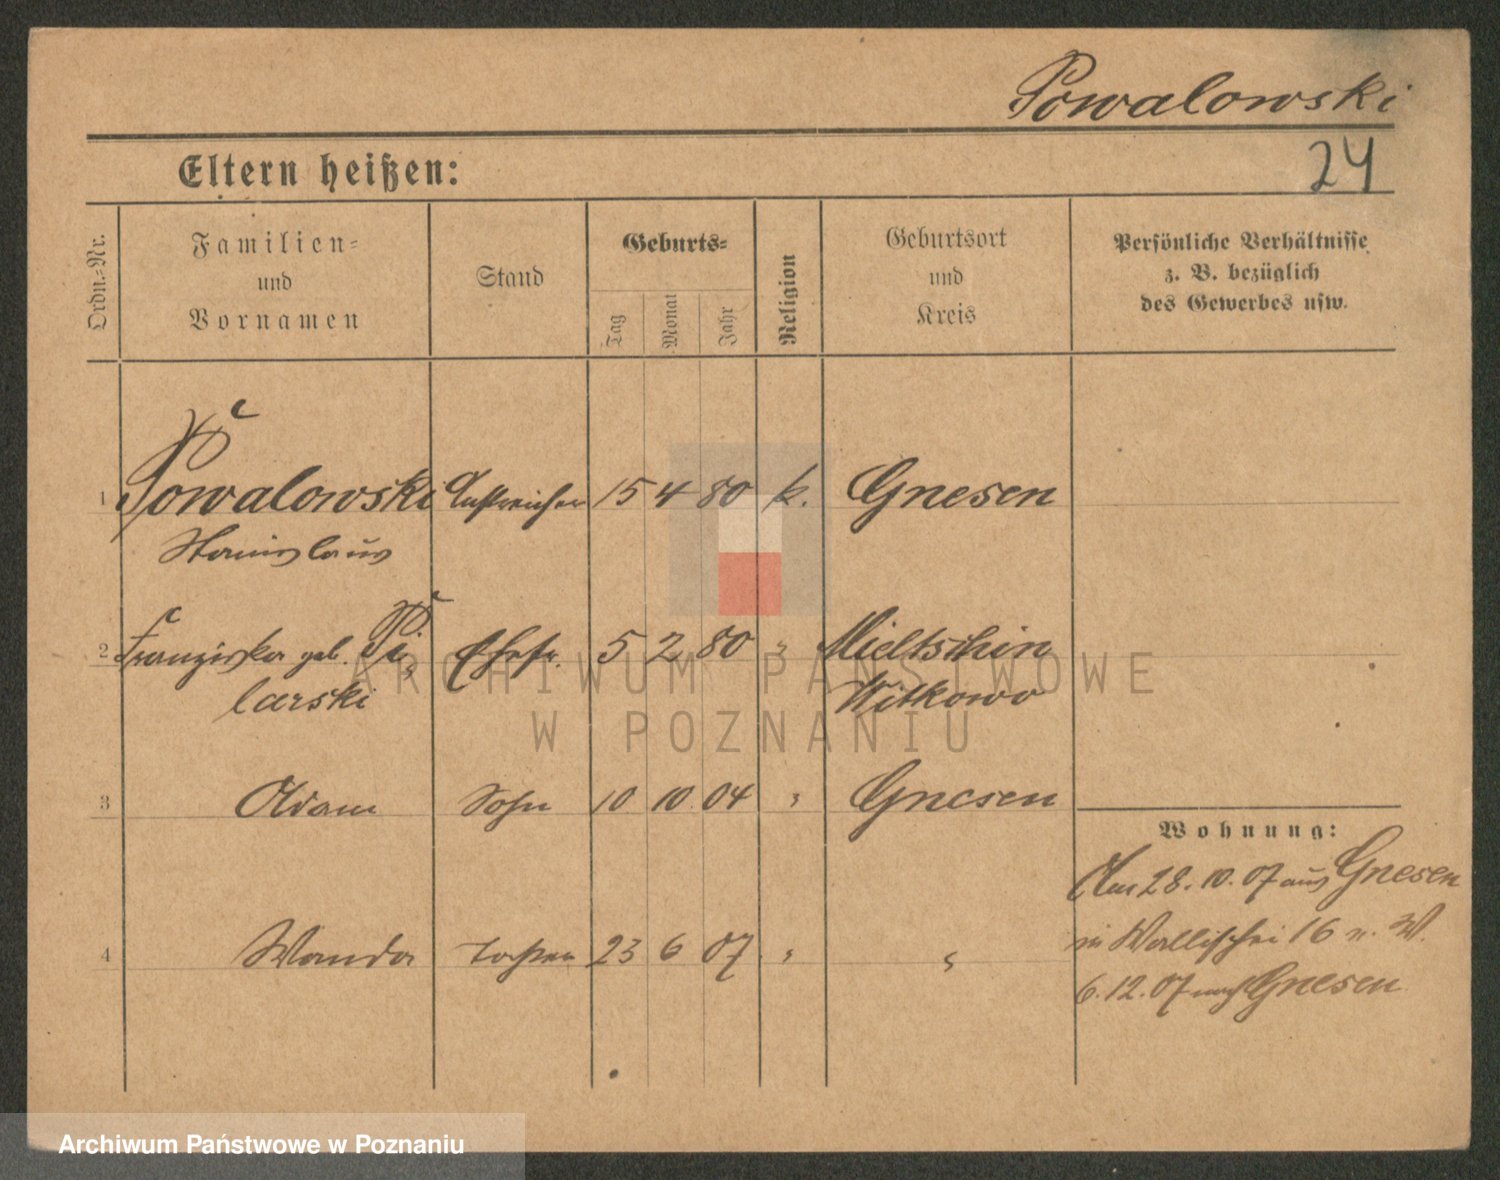 Powalowski
24
Eltern heißen:
Ordn.-Nr.
Familien-
und
Vornamen
Stand
Geburts-
Tag
Monat
Jahr
Religion
Geburtsort
und
Kreis
Persönliche Verhältnisse
z. B. bezüglich
des Gewerbes usw.
1 Powalowski Anstreicher 15 4 80 k. Gnesen
Stanislaus
2 Franziska geb. Pi- Ehefr. 5 2 80 " Mieltschin
larski Witkowo
3 Adam Sohn 10 10 04 " Gnesen
Wohnung:
Am 28.10.07 aus Gnesen
in Wallischei 16 n. W.
4 Wanda Tochter 23 6 07 " "
6.12.07 nach Gnesen
ARCHIWUM PAŃSTWOWE
W POZNANIU
Archiwum Państwowe w Poznaniu